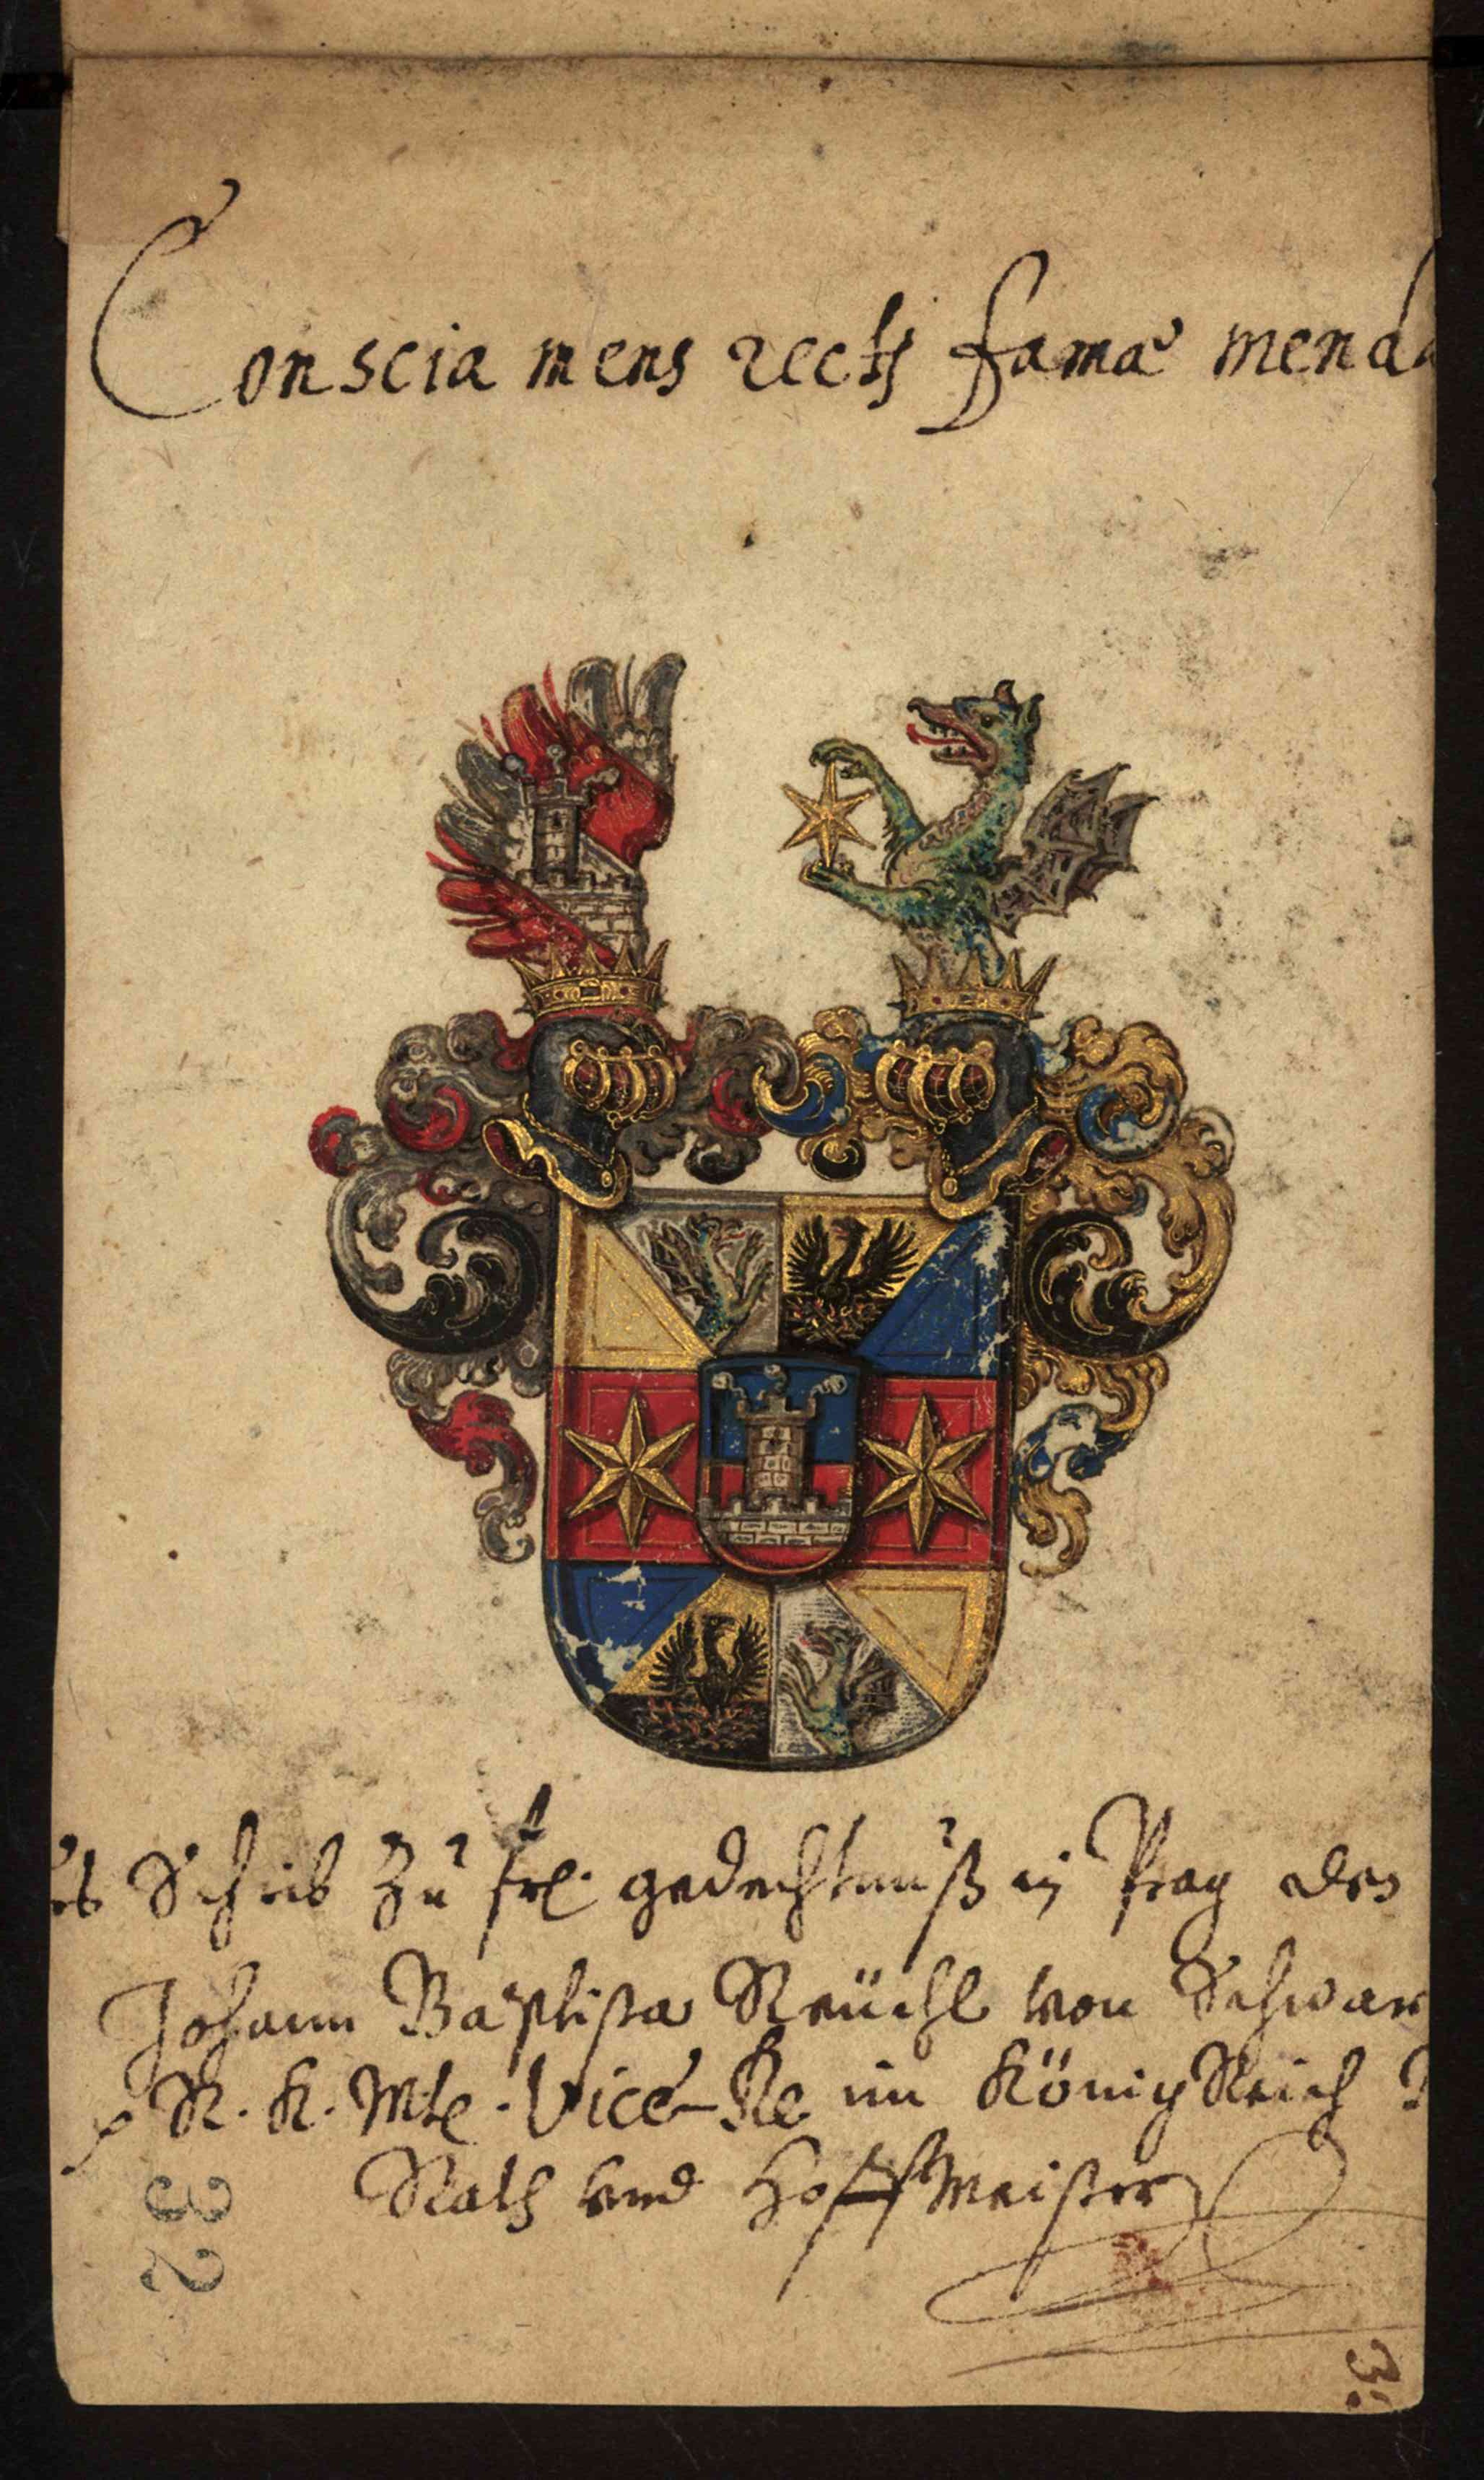 Conscia mens rectj famae menda
Schrib zu frl: gedechtnuß in Prag den
Johann Baptista Reüchl von Schwar
R. K. Mte. Vice-Re im König Reich
Rath vnd Hoffmeister
32
3: